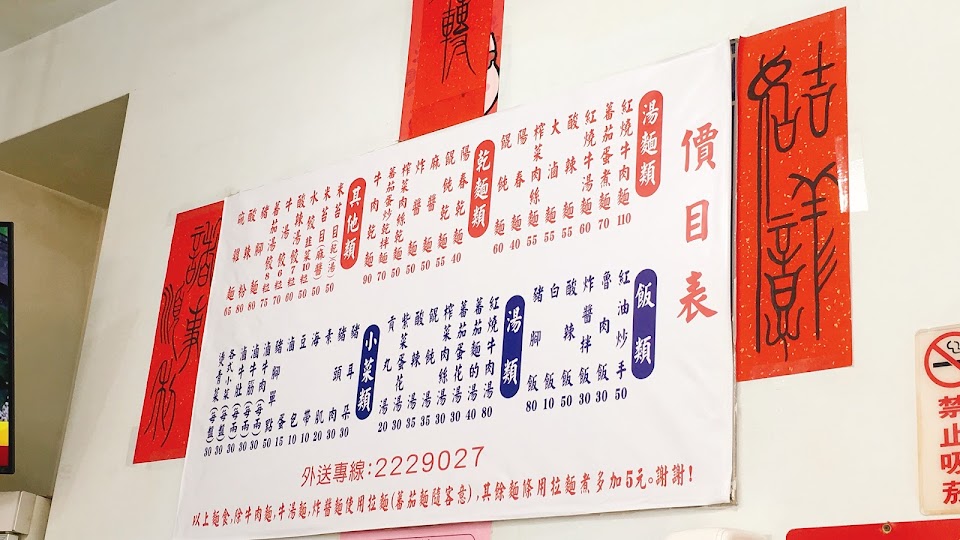 轉
結祥如意
價目表
湯麵類
紅燒牛肉麵 110
蕃茄蛋煮麵 70
紅燒牛湯麵 60
酸辣麵 55
大滷麵 55
榨菜肉絲麵 55
陽春麵 40
餛飩麵 60
乾麵類
陽春乾麵 40
餛飩乾麵 55
麻醬麵 50
炸醬麵 50
榨菜肉絲乾麵 50
蕃茄蛋炒乾拌麵 70
牛肉乾麵 90
其他類
米苔目(乾)(湯) 50
米苔目(麻醬) 50
水餃韭菜10粒 50
酸辣湯餃7粒 60
牛湯餃6粒 70
蕃茄湯餃8粒 75
豬腳麵 80
酸辣粉 80
麵 65
飯類
紅油炒手 50
魯肉飯 30
炸醬拌飯 30
酸辣飯 50
白飯 10
豬腳飯 80
湯類
紅燒牛肉湯 80
蕃茄麵的湯 40
蕃茄蛋花湯 30
榨菜肉絲湯 30
餛飩湯 35
酸辣湯 35
紫菜蛋花湯 30
貢丸湯 20
小菜類
豬耳朵 30
豬頭肉 30
素肌 20
海帶 10
豆包 10
滷蛋 15
豬腳單點 50
滷牛肉(每兩) 30
滷牛筋(每兩) 30
滷牛肚(每兩) 30
各式小菜(每盤) 30
燙青菜(每盤) 30
外送專線:2229027
以上麵食,除牛肉麵,牛湯麵,炸醬麵使用拉麵(蕃茄麵隨客意),其餘麵條用拉麵煮多加5元。謝謝!
諸事順利
禁止吸菸